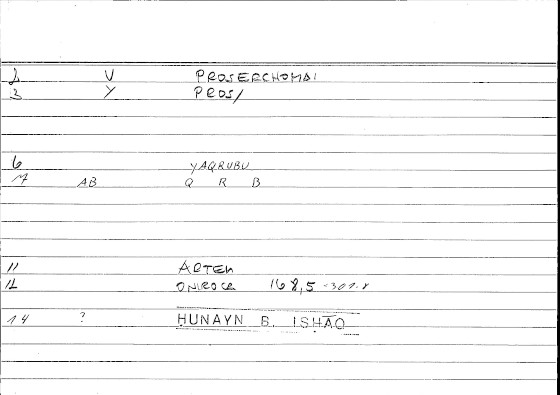 2 V PROSERCHOMAI
3 Y PROS/
6 YAQRUBU
7 AB Q R B
11 ARTEM
12 ONIROCR 168,5
14 ? HUNAYN B. ISHĀQ